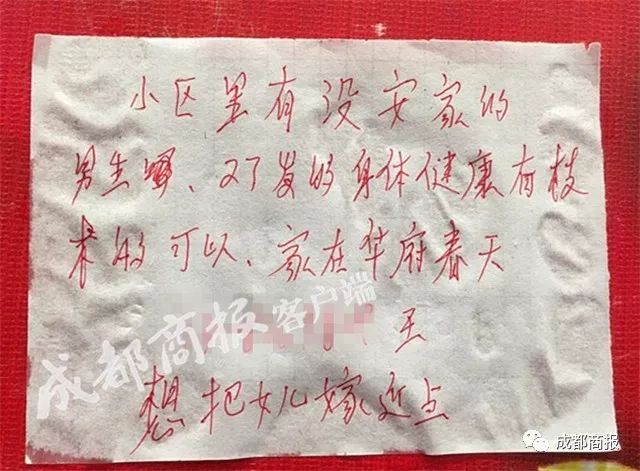 小区里有没安家的
男生嘛、27岁的身体健康有技
术的可以、家在华府春天
王
想把女儿嫁近点
成都商报客户端
成都商报